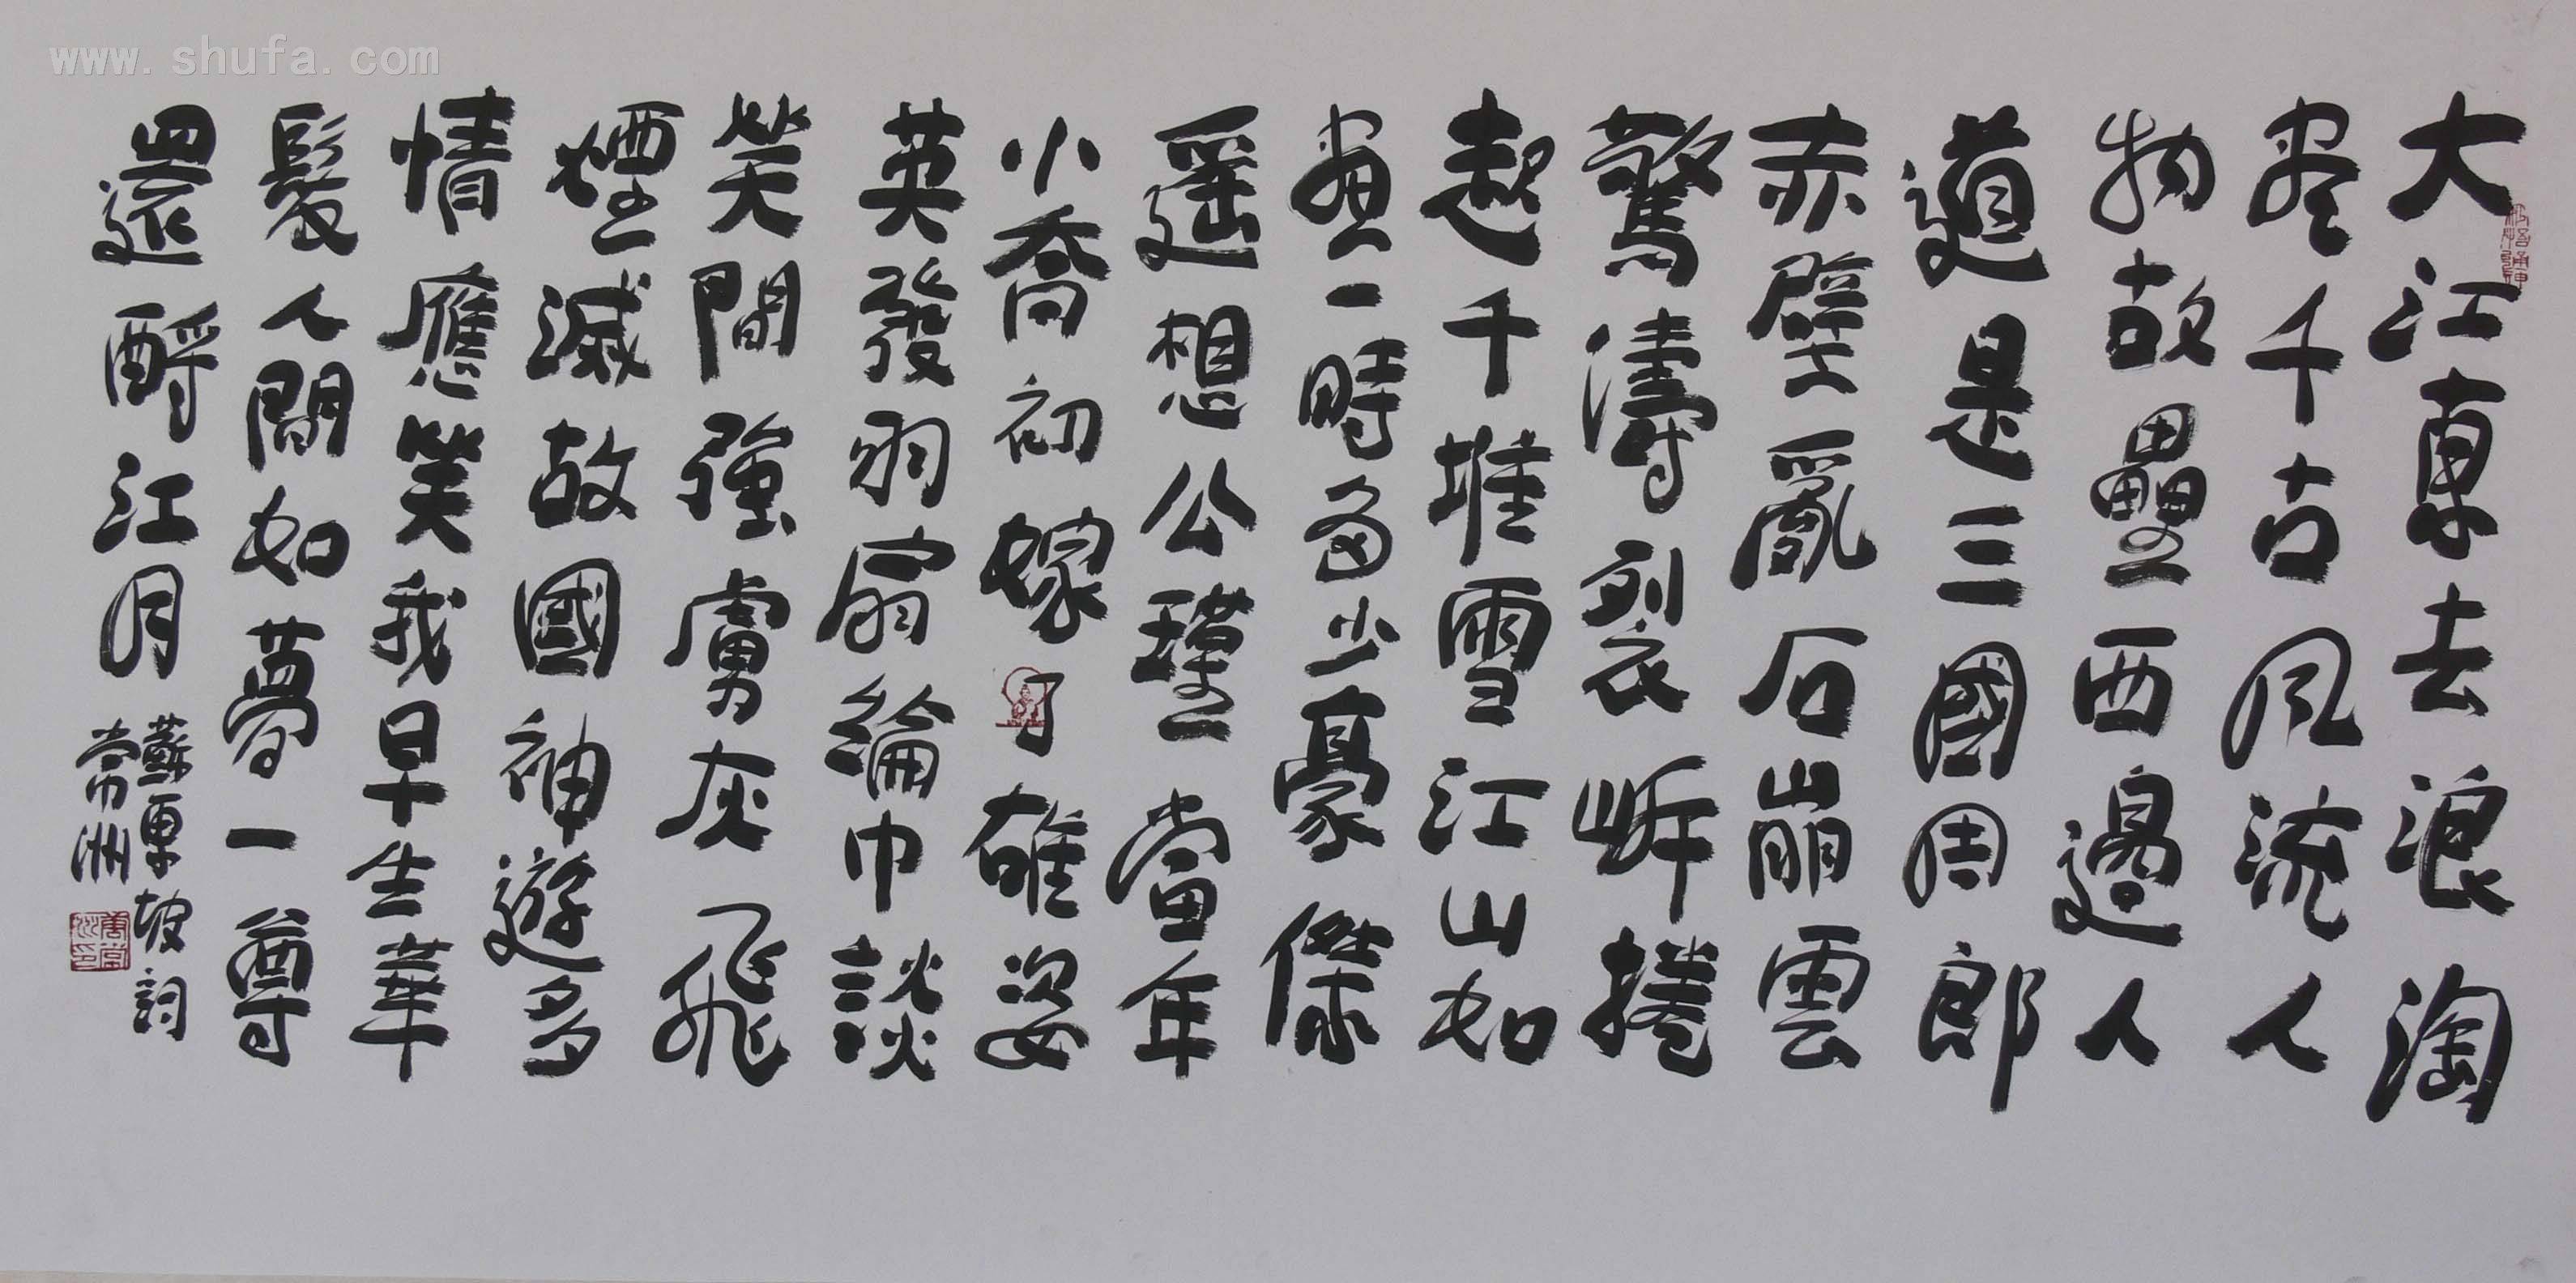 www.shufa.com
大江東去浪淘
盡千古風流人
物故壘西邊人
道是三國周郎
赤壁亂石崩雲
驚濤裂岸捲
起千堆雪江山如
畫一時多少豪傑
遥想公瑾當年
小喬初嫁了雄姿
英發羽扇綸巾談
笑間強虜灰飛
煙滅故國神遊多
情應笑我早生華
髮人間如夢一尊
還酹江月
蘇東坡詞
常洲